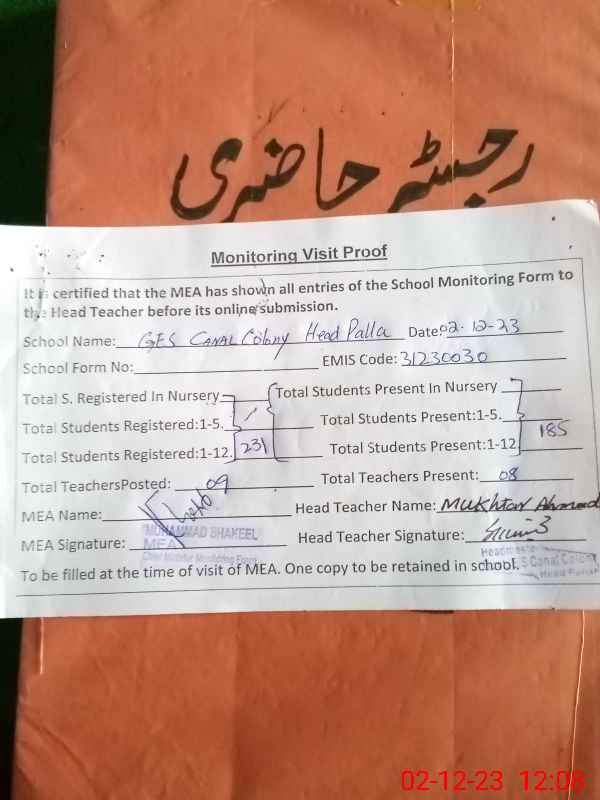 رجسٹر حاضری
Monitoring Visit Proof
It is certified that the MEA has shown all entries of the School Monitoring Form to
the Head Teacher before its online submission.
School Name: GES CANAL Colony Head Palla Date: 02-12-23
School Form No: EMIS Code: 31230030
Total S. Registered In Nursery Total Students Present In Nursery
Total Students Registered:1-5. Total Students Present:1-5.
Total Students Registered:1-12. 231 Total Students Present:1-12 185
Total TeachersPosted: 09 Total Teachers Present: 08
MEA Name: Head Teacher Name: Mukhtar Ahmad
MUHAMMAD SHAKEEL
MEA Signature: MEA Head Teacher Signature:
Headmaster
Canal Colony
To be filled at the time of visit of MEA. One copy to be retained in school.
02-12-23 12:08